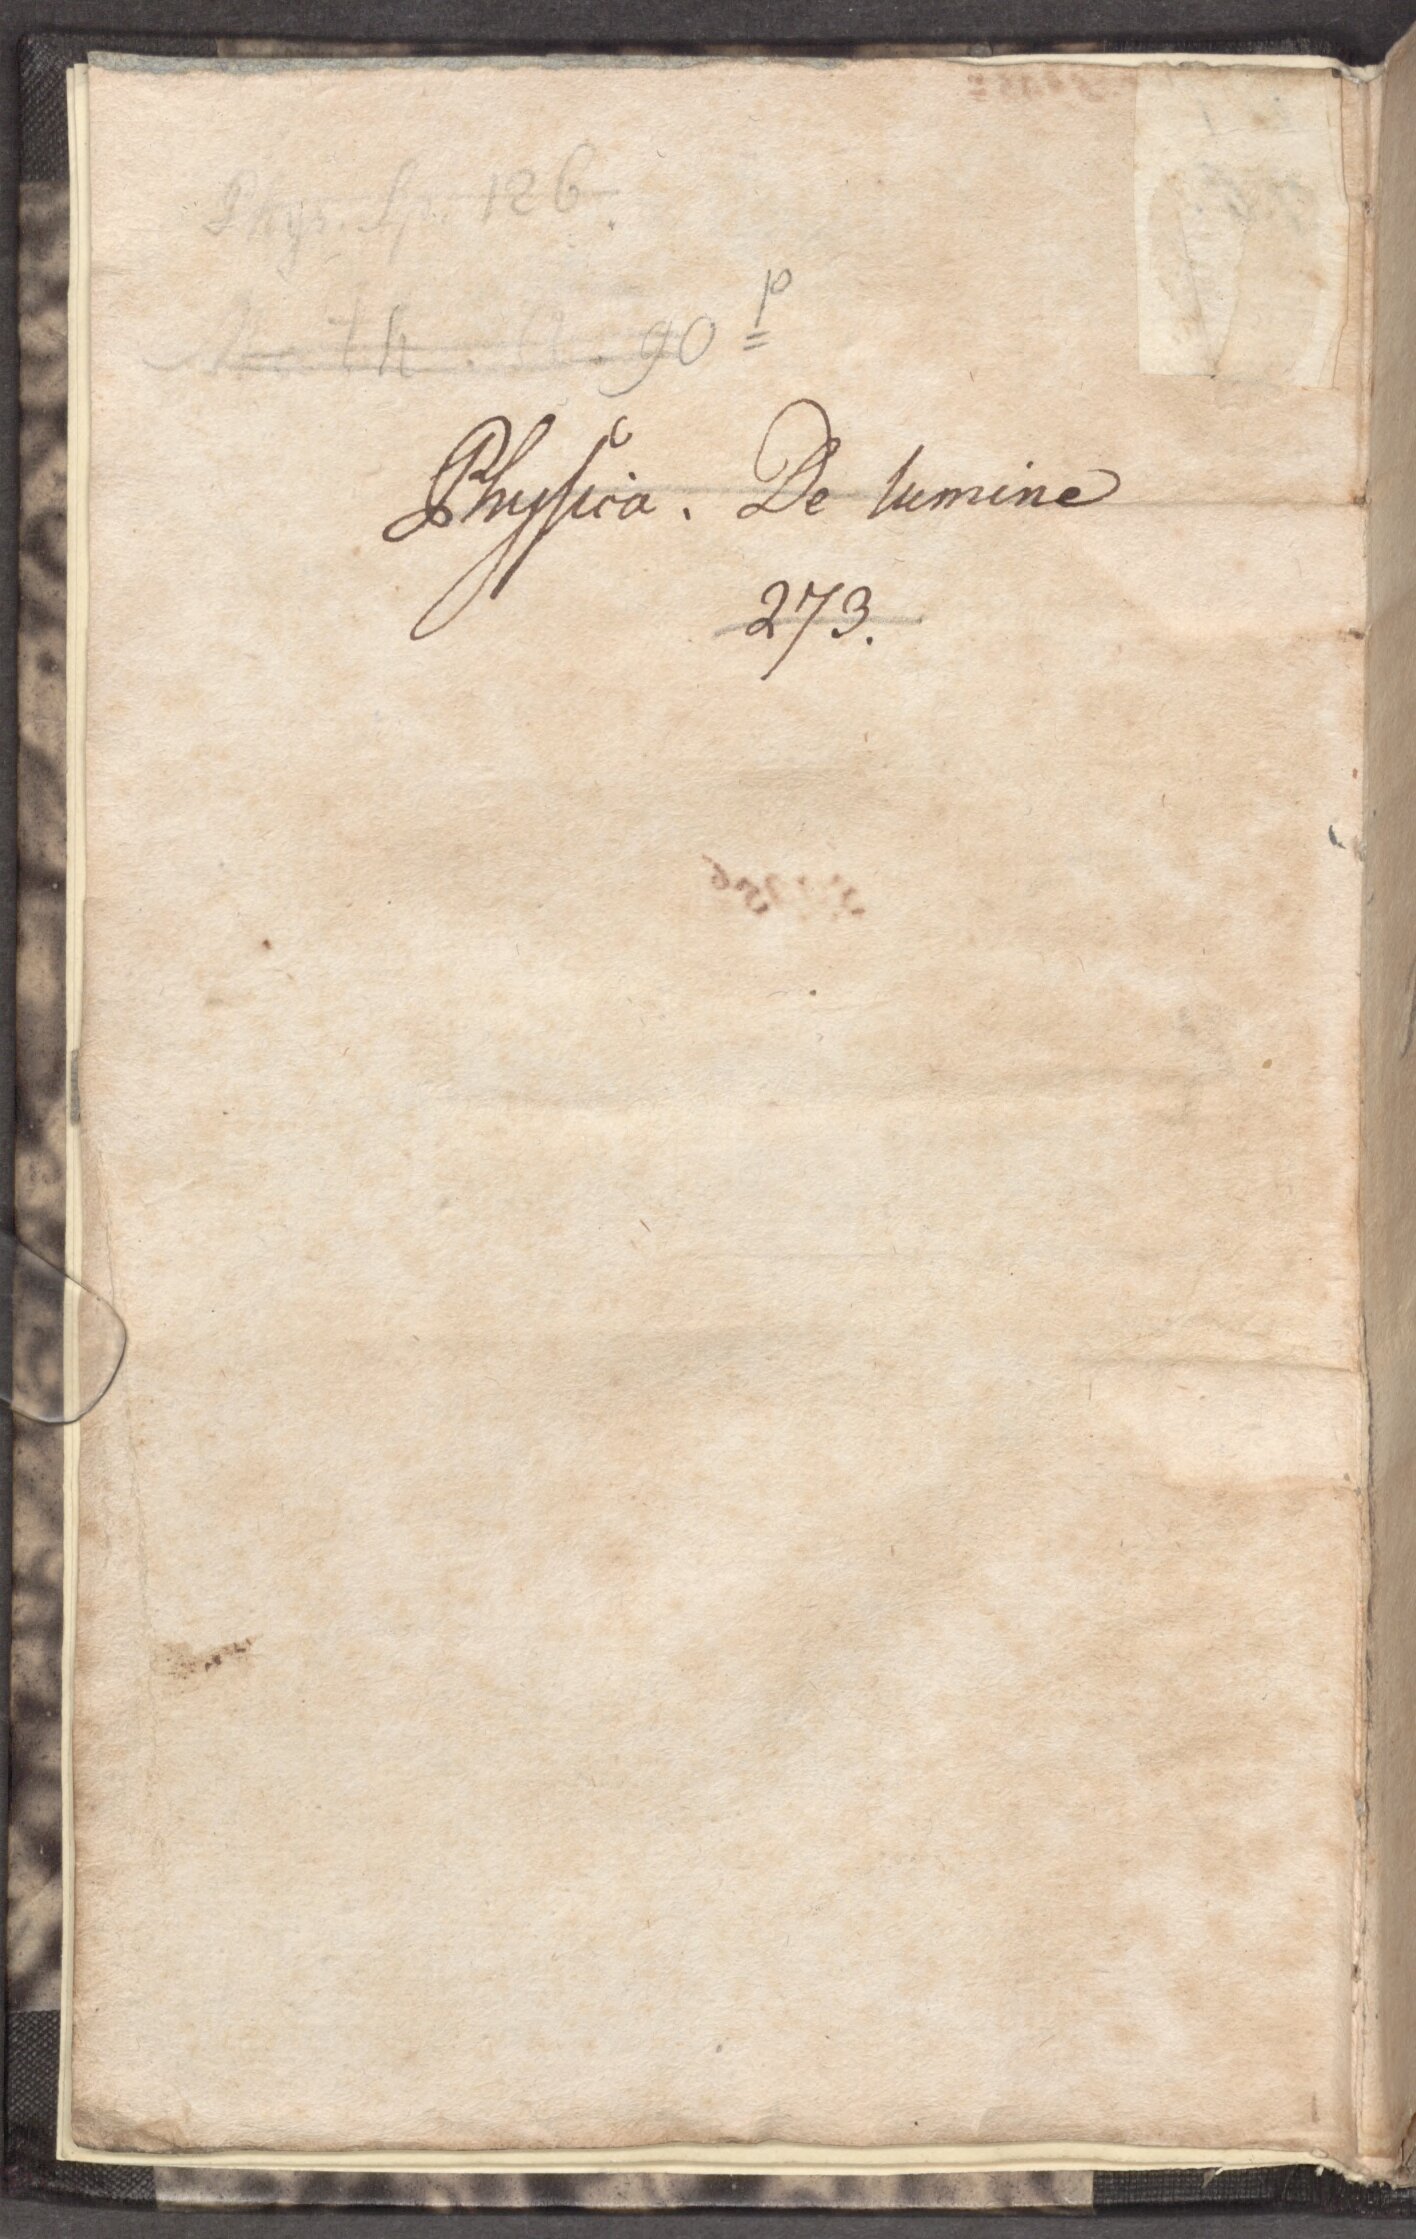 Phys. Sp. 126.
Math. A. 90 p
Physica. De lumine
273.